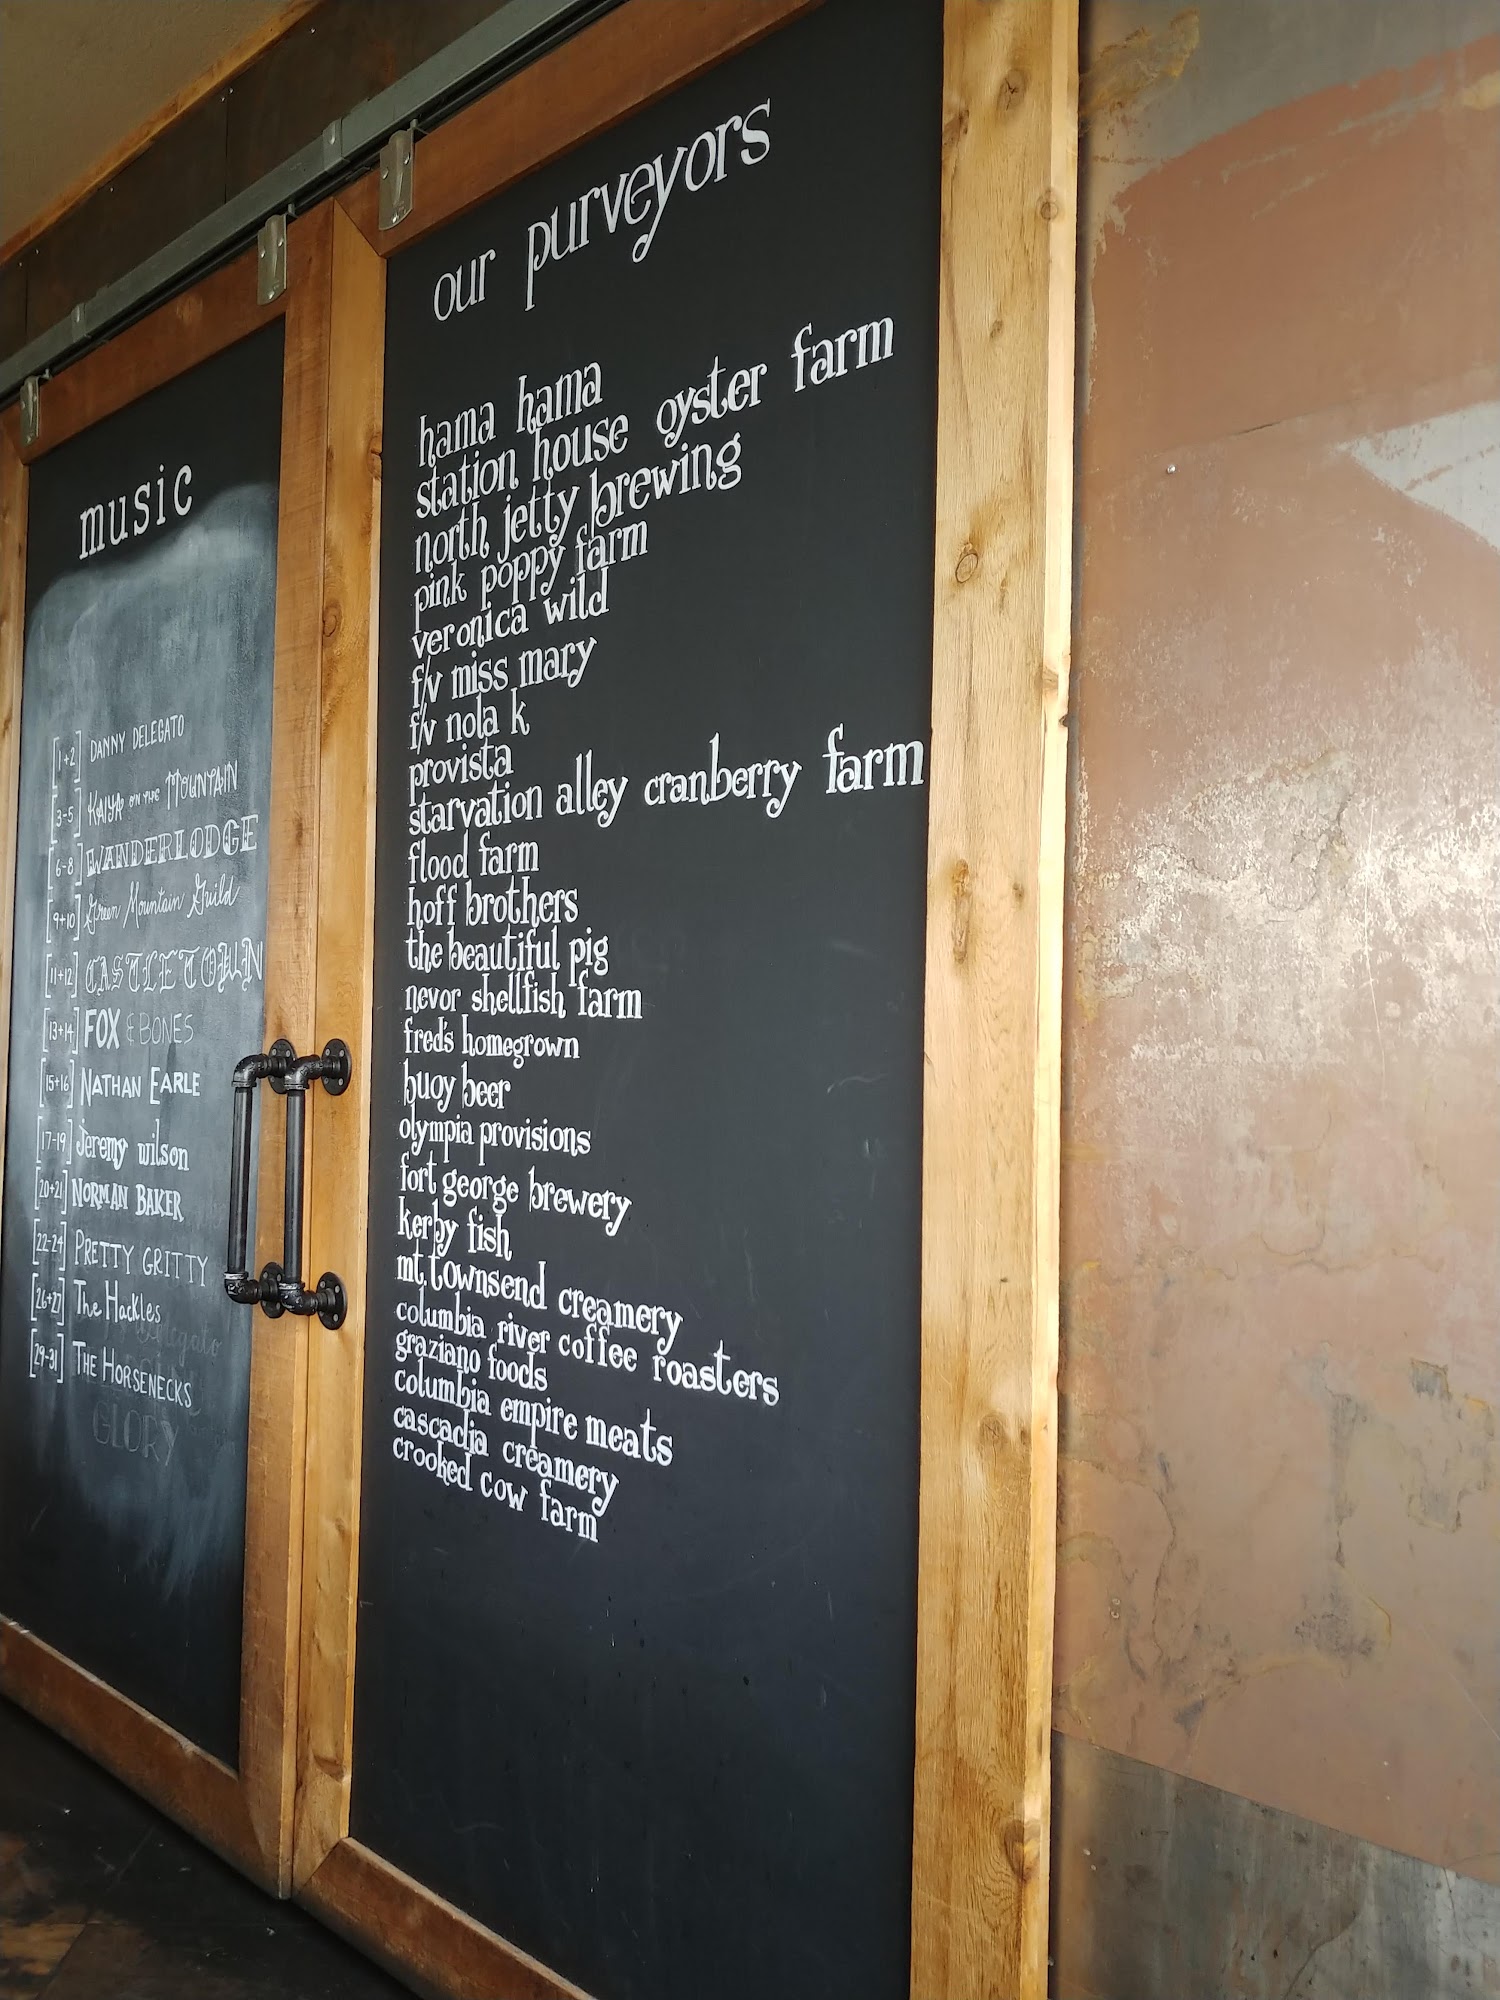 music
[1+2] DANNY DELEGATO
[3-5] KAIYA ON THE MOUNTAIN
[6-8] WANDERLODGE
[9+10] Green Mountain Guild
[11+12] CASTLETOWN
[13+14] FOX & BONES
[15+16] NATHAN EARLE
[17-19] Jeremy wilson
[20+21] NORMAN BAKER
[22-24] PRETTY GRITTY
[26+27] The Hackles
[29-31] THE HORSENECKS
GLORY
our purveyors
hama hama
station house oyster farm
north jetty brewing
pink poppy farm
veronica wild
f/v miss mary
f/v nola k
provista
starvation alley cranberry farm
flood farm
hoff brothers
the beautiful pig
nevor shellfish farm
fred's homegrown
buoy beer
olympia provisions
fort george brewery
kerby fish
mt. townsend creamery
columbia river coffee roasters
graziano foods
columbia empire meats
cascadia creamery
crooked cow farm